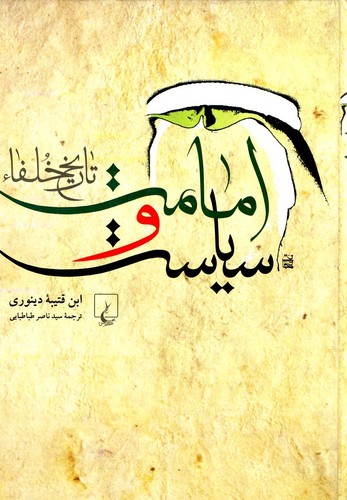 امامت
و
سیاست
تاریخ خلفاء
ابن قتیبهٔ دینوری
ترجمهٔ سید ناصر طباطبایی